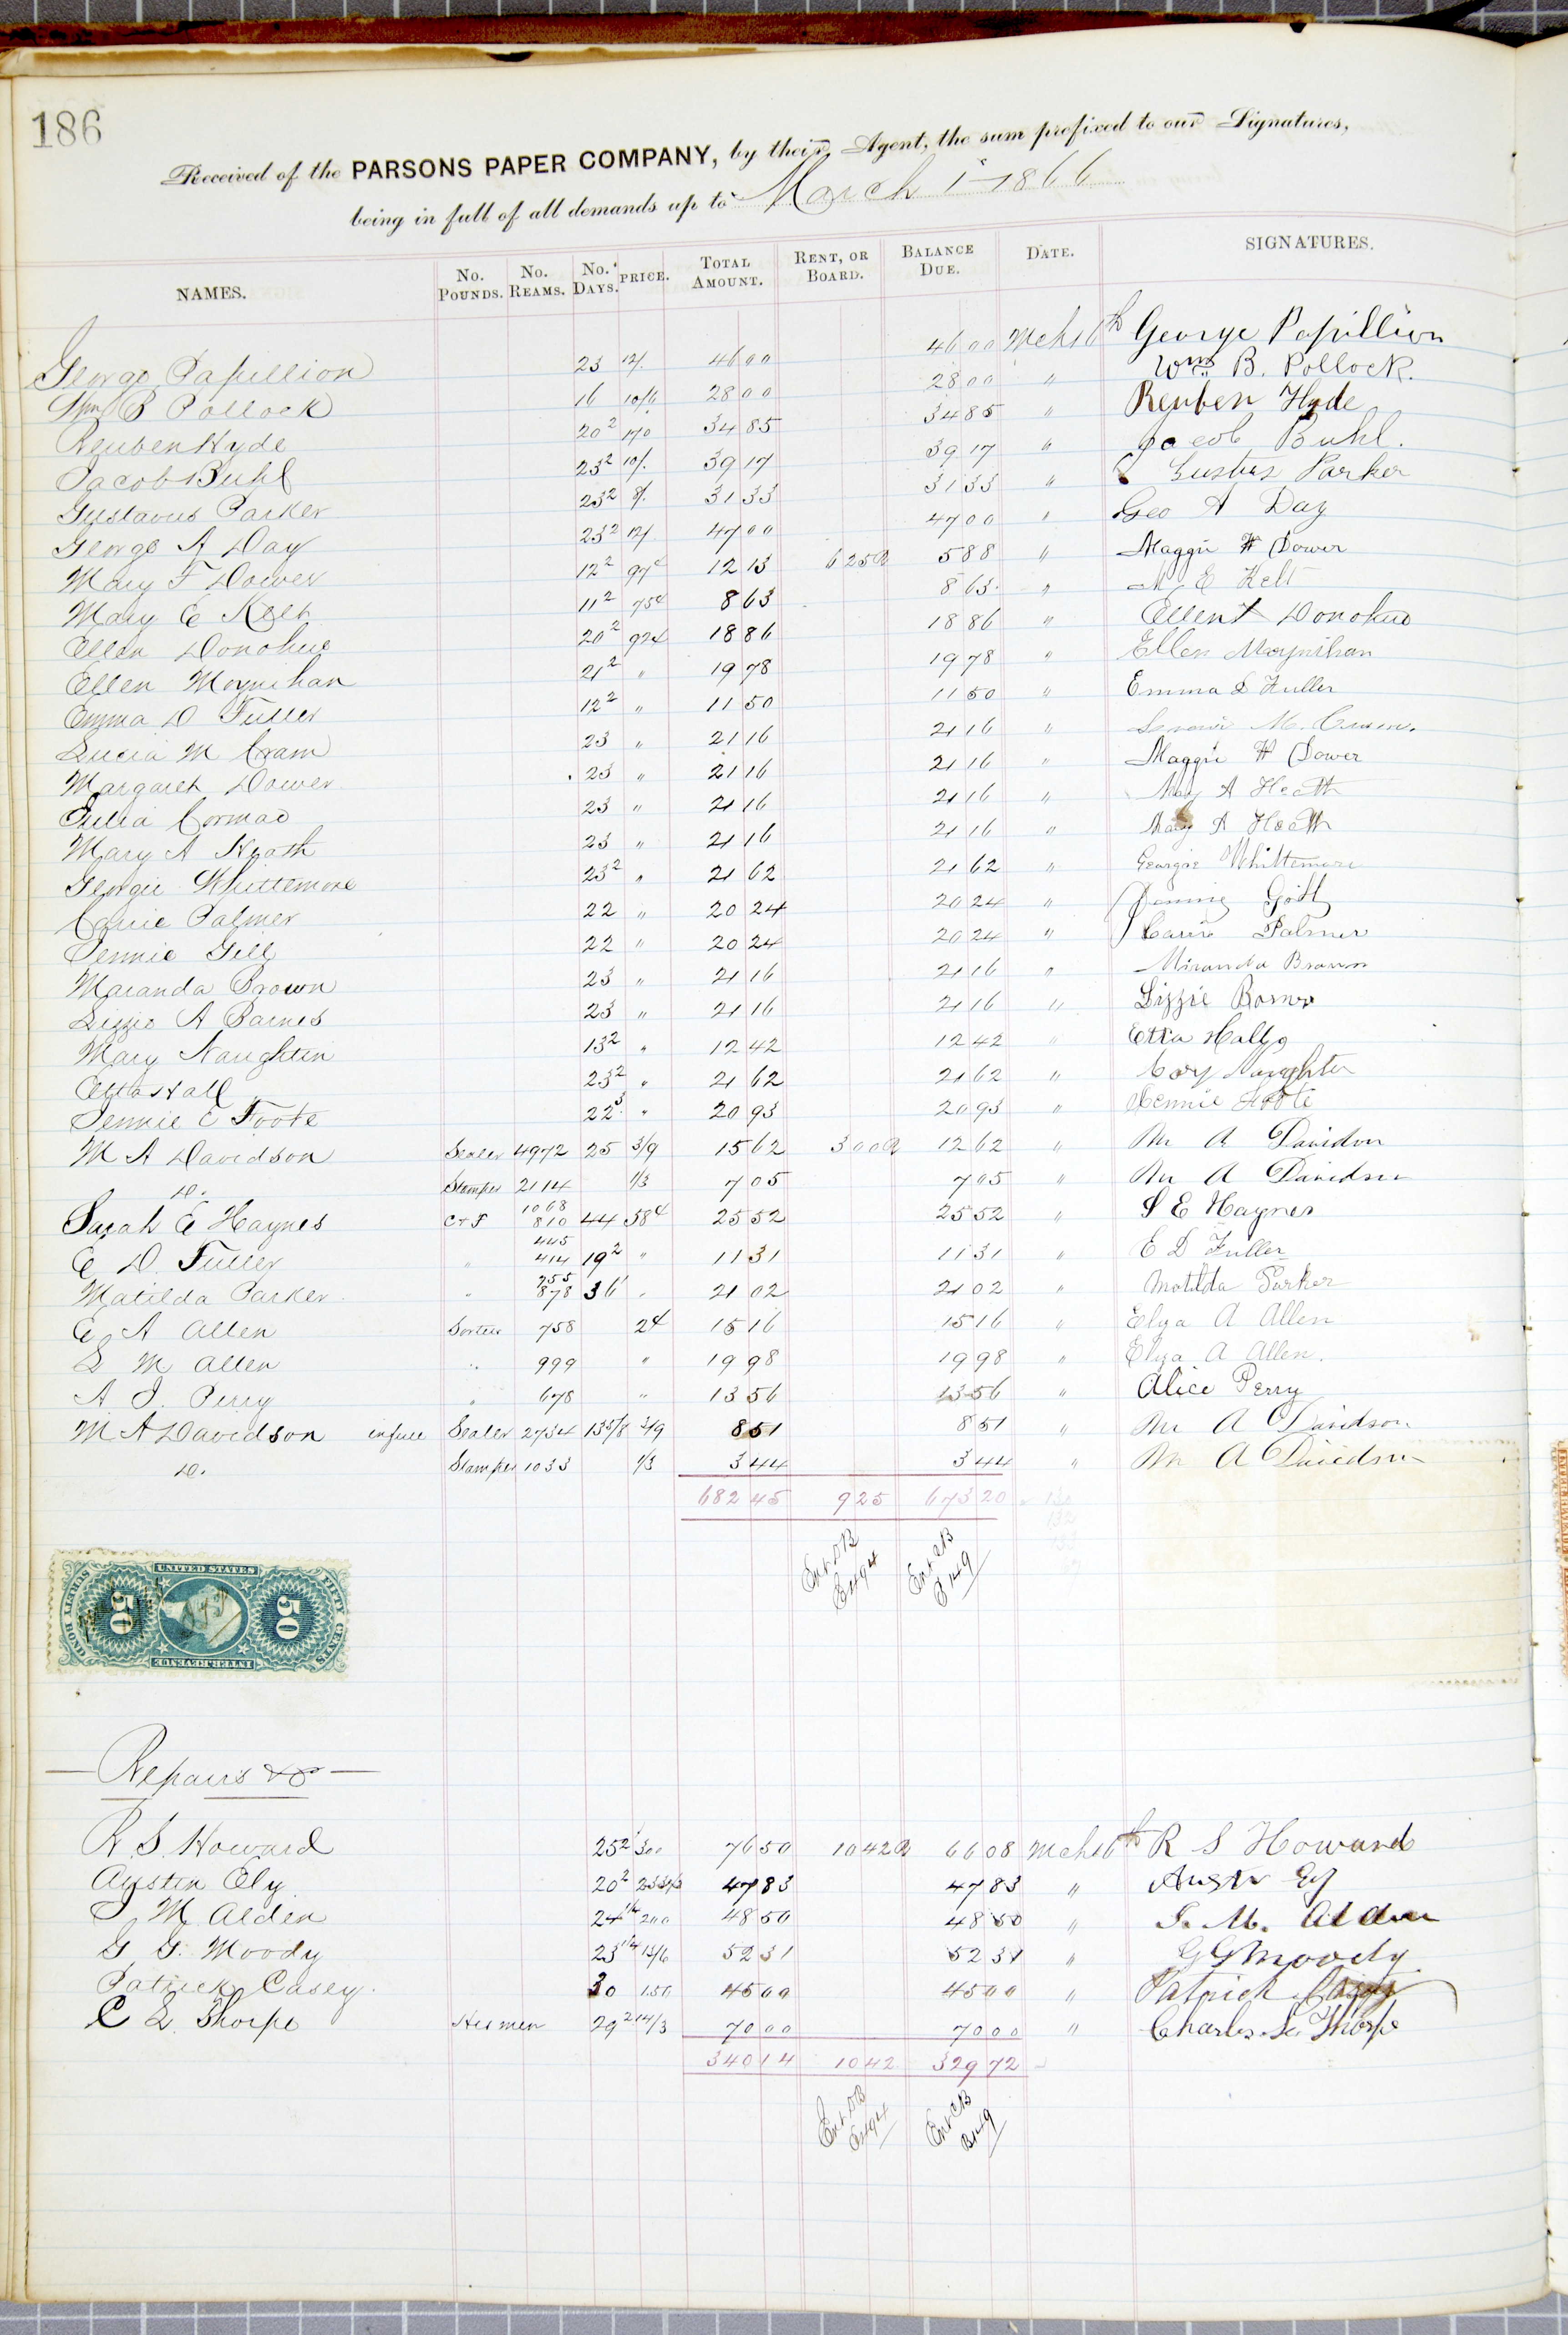 186
Received of the PARSONS PAPER COMPANY, by their Agent, the sum prefixed to our Signatures,
being in full of all demands up to March 1 - 1866
NAMES. No. Pounds. No. Reams. No. Days. PRICE. Total Amount. Rent, or Board. Balance Due. Date. SIGNATURES.
George Papillion 23 12/. 46 00 46 00 Mch 16th George Papillion
Wm B Pollock 16 10/6 28 00 28 00 " Wm B. Pollock.
Reuben Hyde 20 2 170 34 85 34 85 " Reuben Hyde
Jacob Buhl 23 2 10/. 39 17 39 17 " Jacob Buhl.
Gustavus Parker 23 2 8/. 31 33 31 33 " Gustus Parker
George A Day 23 2 12/ 47 00 47 00 " Geo A Day
Mary F Dower 12 2 97c 12 13 6 25 B 5 88 " Maggie H Dower
Mary E Kelt 11 2 75c 8 63 8 63 " M E Kelt
Ellen Donohue 20 2 92c 18 86 18 86 " Ellen Donohue
Ellen Moynihan 21 2 " 19 78 19 78 " Ellen Moynihan
Emma D Fuller 12 2 " 11 50 11 50 " Emma D Fuller
Lucia M Cram 23 " 21 16 21 16 " M. Cram.
Margaret Dower 23 " 21 16 21 16 " Maggie H Dower
Julia Cormac 23 " 21 16 21 16 " May A Heath
Mary A Heath 23 " 21 16 21 16 " May A Heath
Georgie Whittemore 23 2 " 21 62 21 62 " Georgie Whittemore
Carrie Palmer 22 " 20 24 20 24 "
Jennie Gill 22 " 20 24 20 24 " Carrie Palmer
Maranda Brown 23 " 21 16 21 16 " Miranda Brown
Lizzie A Barnes 23 " 21 16 21 16 " Lizzie Barnes
Mary Naughtin 13 2 " 12 42 12 42 " Etta Hall
Etta Hall 23 2 " 21 62 21 62 " Naughten
Jennie E Foote 22 3 " 20 93 20 93 " Jennie Foote
M A Davidson Sealer 4972 25 3/9 15 62 3 00 B 12 62 " M A Davidson
Do. Stamper 2114 1/3 7 05 7 05 " M A Davidson
Sarah E Haynes C & F 1068 810 44 58c 25 52 25 52 " S E Haynes
E D. Fuller " 445 414 19 2 " 11 31 11 31 " E D Fuller
Matilda Parker " 255 878 36 1 " 21 02 21 02 " Matilda Parker
E A Allen Sorter 758 2c 15 16 15 16 " Elza A Allen
L M Allen " 999 " 19 98 19 98 " Elza A Allen.
A J. Perry " 678 " 13 56 13 56 " Alice Perry
M A Davidson in full Sealer 2734 13 5/8 3/9 8 51 8 51 " M A Davidson
Do. Stamper 1033 1/3 3 44 3 44 " M A Davidson
682 45 9 25 673 20
Ent DB E 494 Ent CB B 149
UNITED STATES
50 50
SURETY BOND FIFTY CENTS
INTER.REVENUE
Repairs &c
R. S. Howard 25 2 300 76 50 10 42 B 66 08 Mch 16th R S Howard
Austin Ely 20 2 2 33 1/3 47 83 47 83 " Austin Ely
J M Alden 24 1/4 200 48 50 48 50 " J. M. Alden
G G. Moody 23 1/4 13/6 52 31 52 31 " G G Moody
Patrick Casey. 30 150 45 00 45 00 " Patrick Casey
C L. Thorpe 29 2 14/3 70 00 70 00 " Charles L. Thorpe
340 14 10 42 329 72
Ent DB E 494 Ent CB B 149